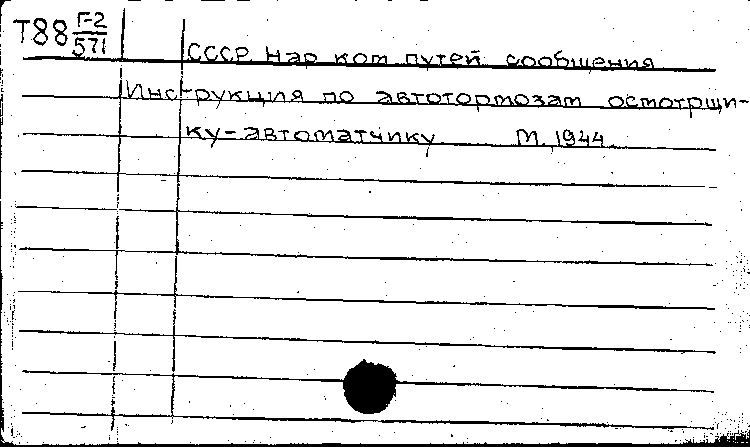 Т88 Г-2/571
СССР Нар ком путей сообщения
Инструкция по автотормозам осмотрщи-
ку-автоматчику М, 1944